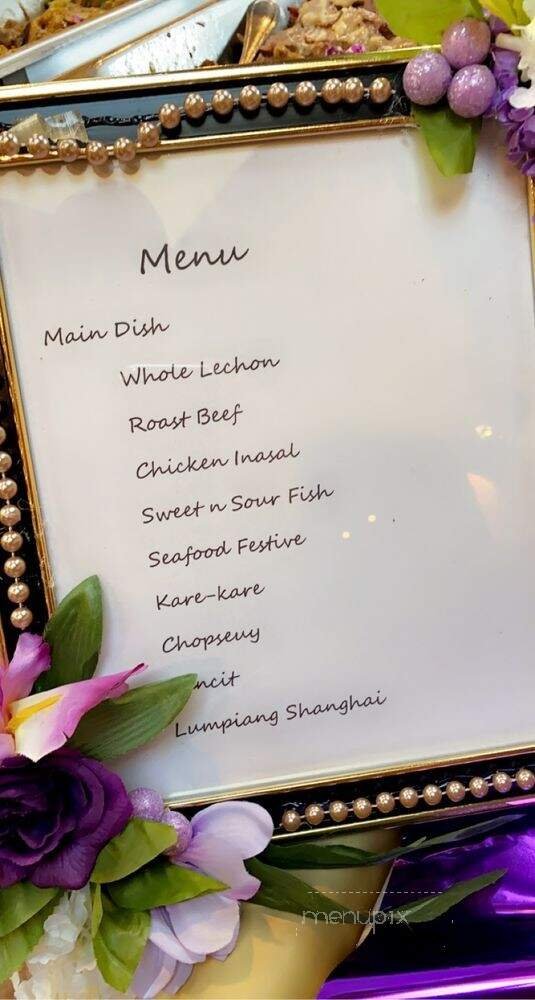 Menu
Main Dish
Whole Lechon
Roast Beef
Chicken Inasal
Sweet n Sour Fish
Seafood Festive
Kare-kare
Chopseuy
ncit
Lumpiang Shanghai
menupix